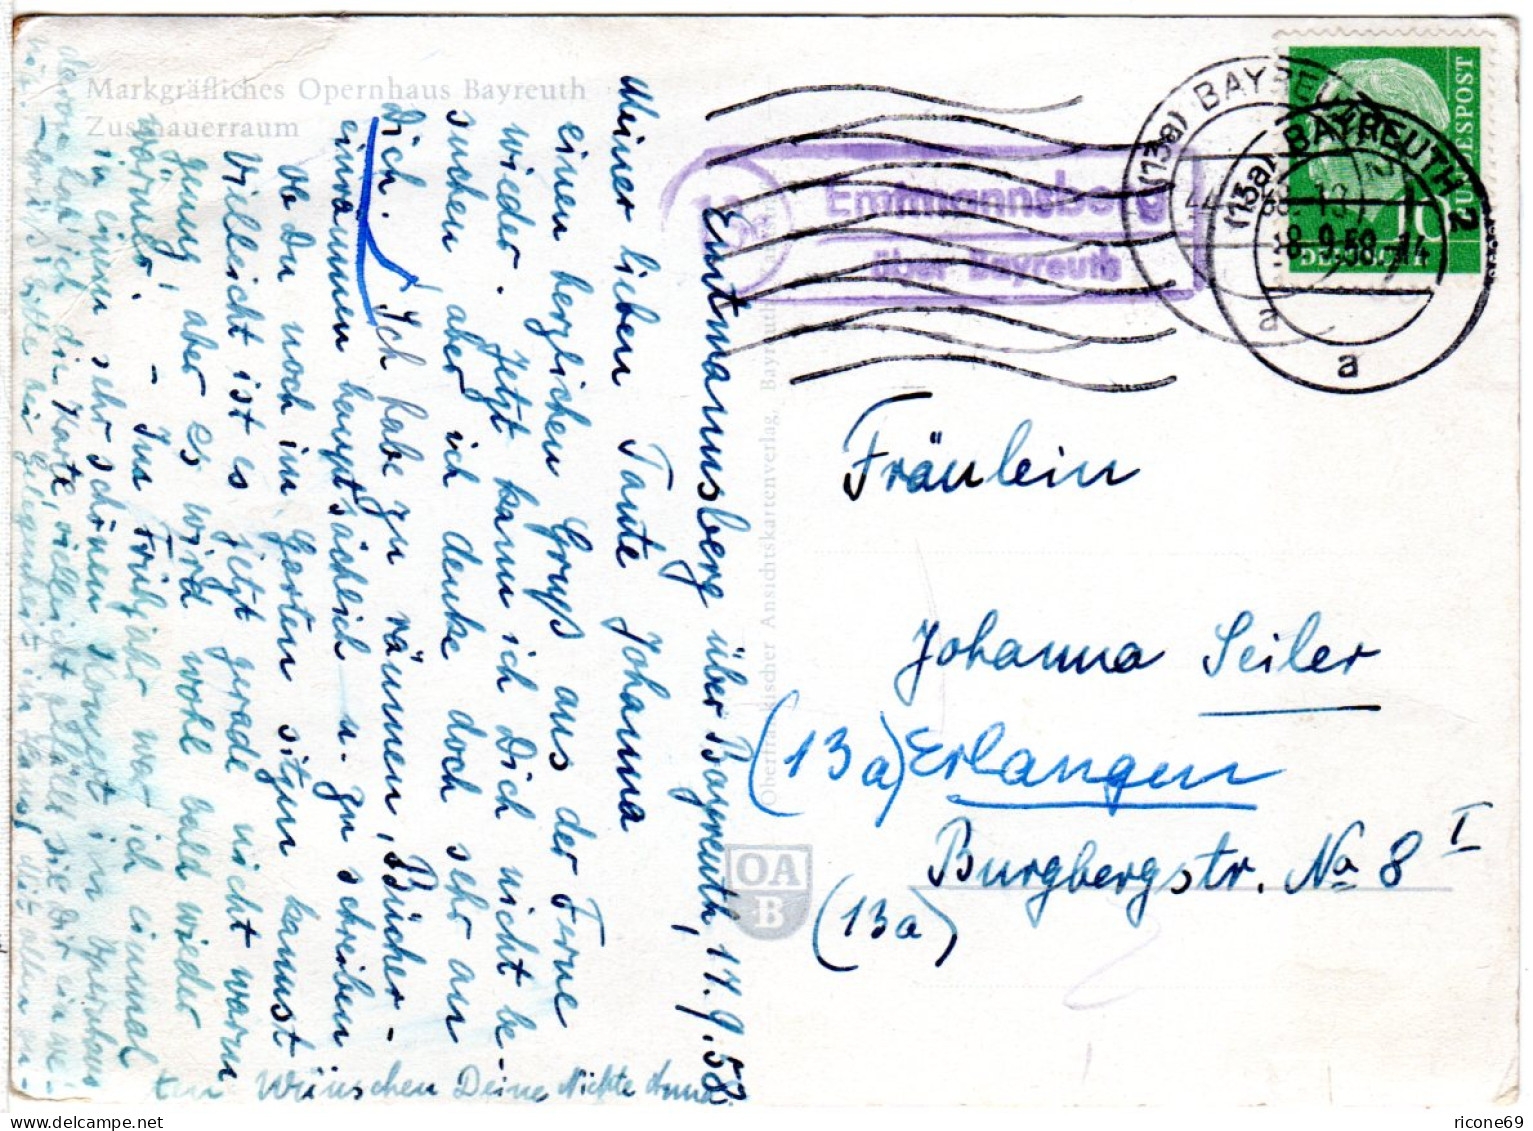 Markgräfliches Opernhaus Bayreuth
Zuschauerraum
Emtmannsberg über Bayreuth, 17.9.58.
Meiner lieben Tante Johanna
einen herzlichen Gruß aus der Ferne
wieder. Jetzt kann ich Dich nicht be-
suchen, aber ich denke doch sehr an
Dich. Ich habe zu räumen, Bücher-
einräumen hauptsächlich u. zu schreiben
Ob Du noch im Garten sitzen kannst
Vielleicht ist es jetzt gerade nicht warm
genug, aber es wird wohl bald wieder
warm. - Im Frühjahr war ich einmal
in einem sehr schönen Konzert im Opernhaus
davon hab' ich die Karte vielleicht gefällt sie Dir
ten Wünschen Deine Nichte Anna.
Oberfränkischer Ansichtskartenverlag, Bayreuth
OA
B
13a
Emtmannsberg
über Bayreuth
(13a) BAYREUTH 2
(13a) BAYREUTH 2
18.9.58.-14
a
a
DEUTSCHE
BUNDESPOST
10
Fräulein
Johanna Seiler
(13a) Erlangen
Burgbergstr. No 8 I
(13a)
ricone69